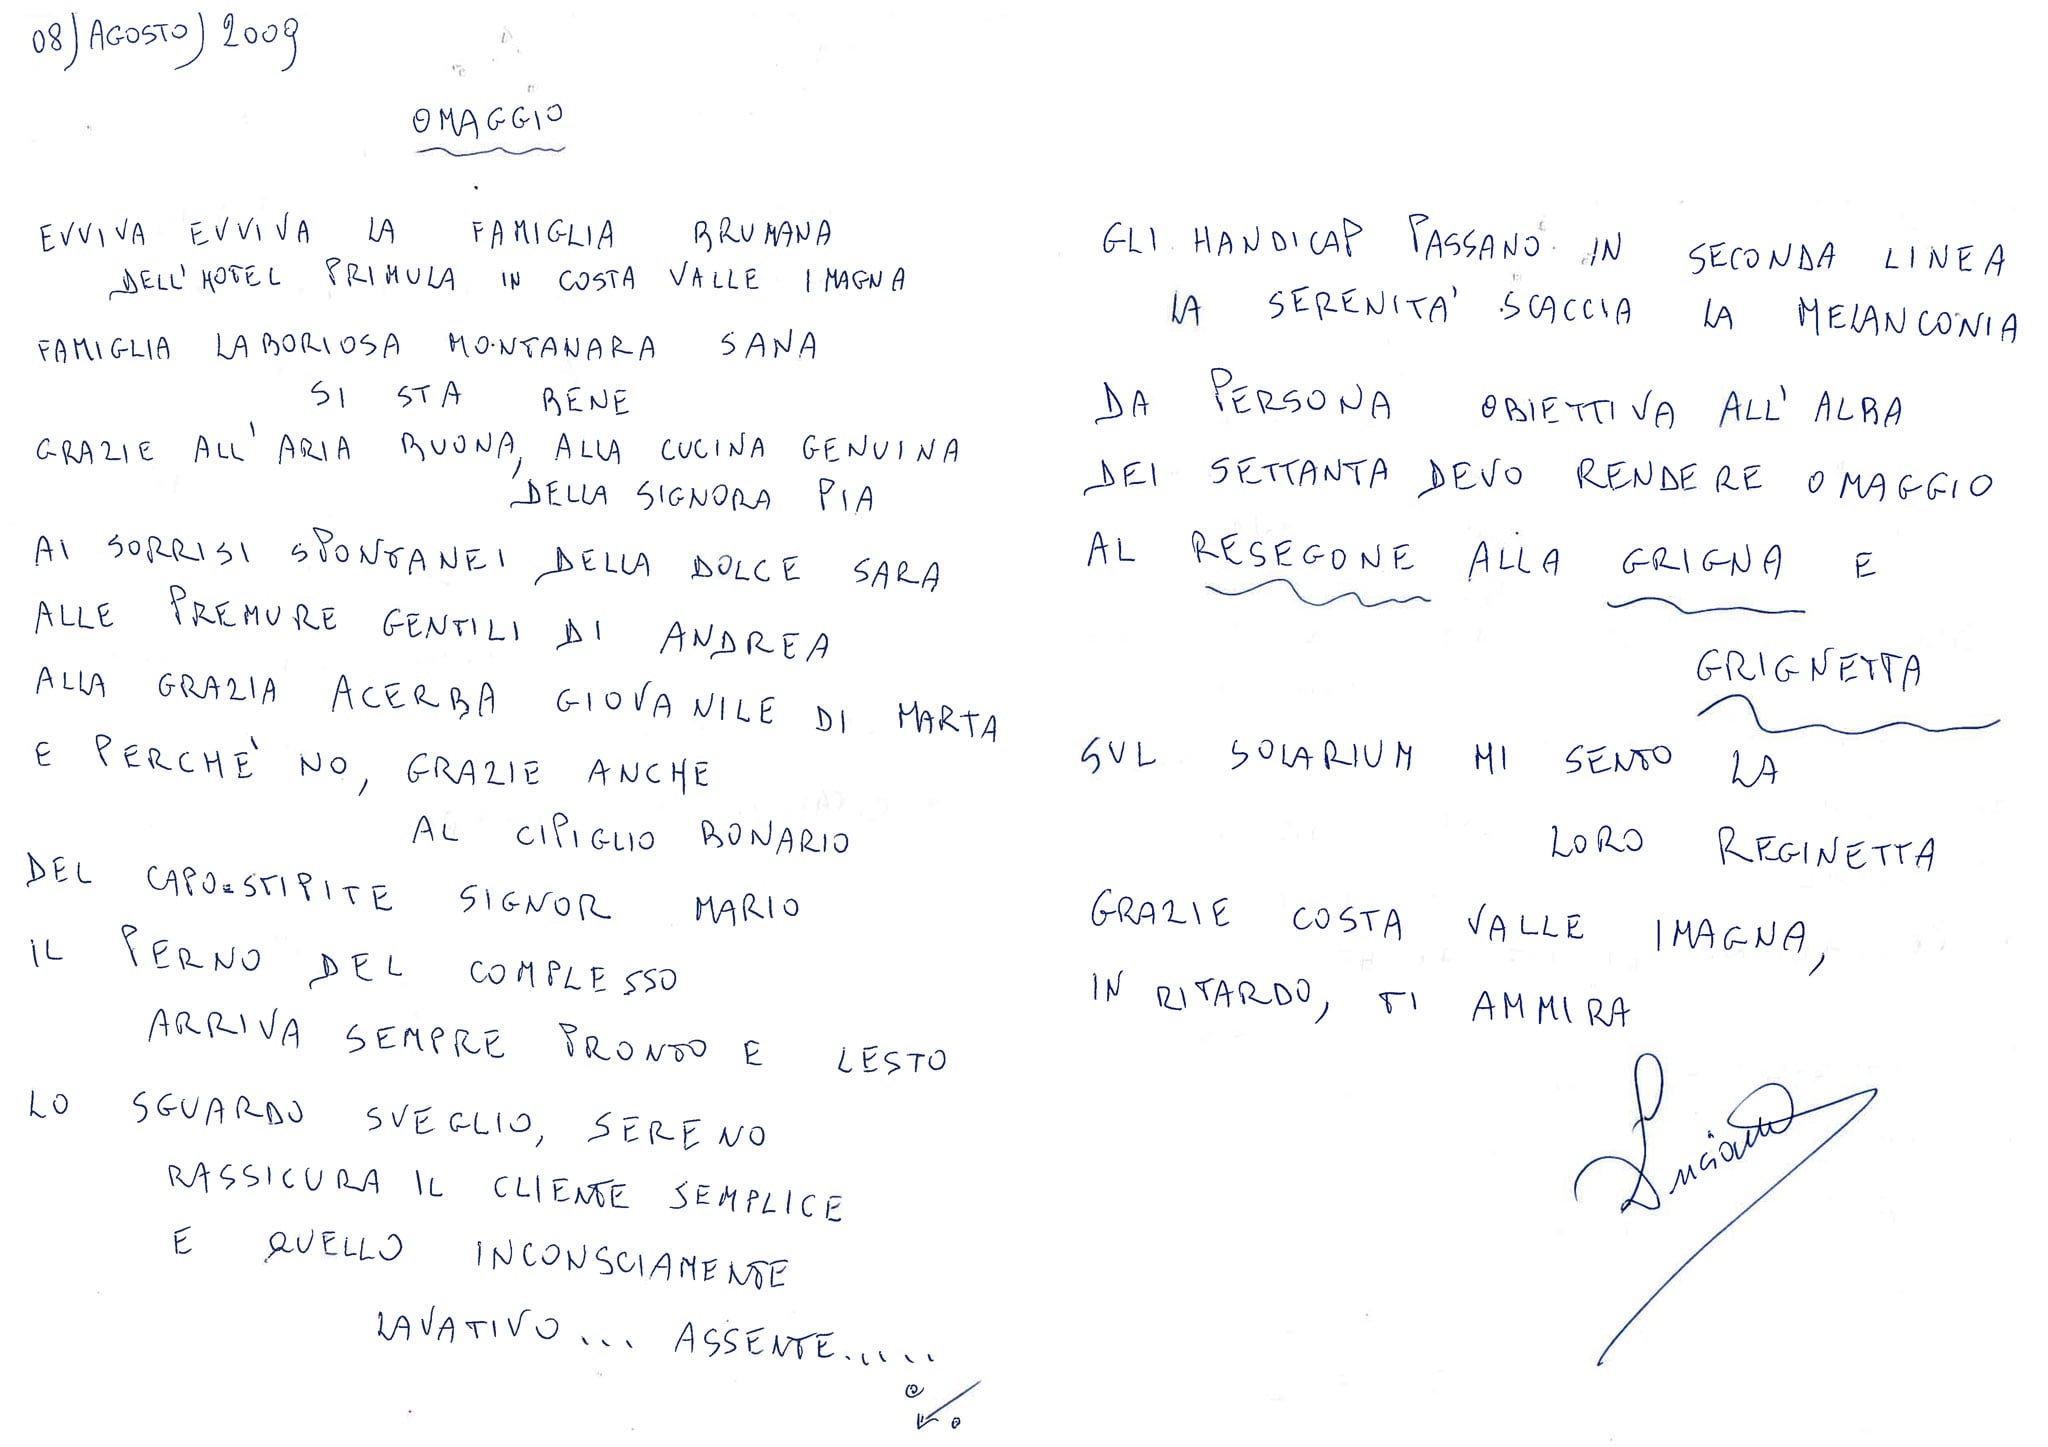 08) AGOSTO) 2009
OMAGGIO
EVVIVA EVVIVA LA FAMIGLIA BRUMANA
DELL'HOTEL PRIMULA IN COSTA VALLE IMAGNA
FAMIGLIA LABORIOSA MONTANARA SANA
SI STA BENE
GRAZIE ALL'ARIA BUONA, ALLA CUCINA GENUINA
DELLA SIGNORA PIA
AI SORRISI SPONTANEI DELLA DOLCE SARA
ALLE PREMURE GENTILI DI ANDREA
ALLA GRAZIA ACERBA GIOVANILE DI MARTA
E PERCHE' NO, GRAZIE ANCHE
AL CIPIGLIO BONARIO
DEL CAPO=STIPITE SIGNOR MARIO
IL PERNO DEL COMPLESSO
ARRIVA SEMPRE PRONTO E LESTO
LO SGUARDO SVEGLIO, SERENO
RASSICURA IL CLIENTE SEMPLICE
E QUELLO INCONSCIAMENTE
LAVATIVO... ASSENTE.....
GLI HANDICAP PASSANO IN SECONDA LINEA
LA SERENITA' SCACCIA LA MELANCONIA
DA PERSONA OBIETTIVA ALL'ALBA
DEI SETTANTA DEVO RENDERE OMAGGIO
AL RESEGONE ALLA GRIGNA E
GRIGNETTA
SUL SOLARIUM MI SENTO LA
LORO REGINETTA
GRAZIE COSTA VALLE IMAGNA,
IN RITARDO, TI AMMIRA